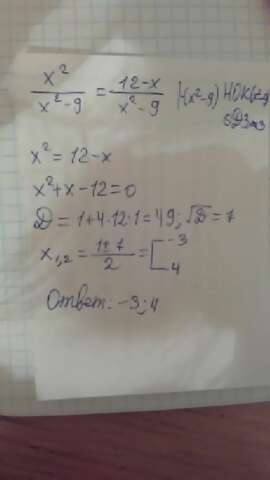 x²/(x²-9) = (12-x)/(x²-9) |·(x²-9) НОК(x²-9)
x² = 12-x
x²+x-12=0
D = 1+4·12·1=49; √D=7
x₁,₂ = (1±7)/2 = [-3
4
Ответ: -3; 4